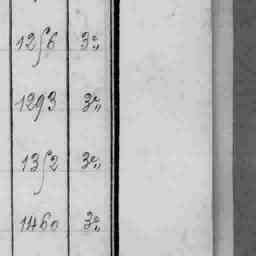 1256 3%
1293 3%
1352 3%
1460 3%